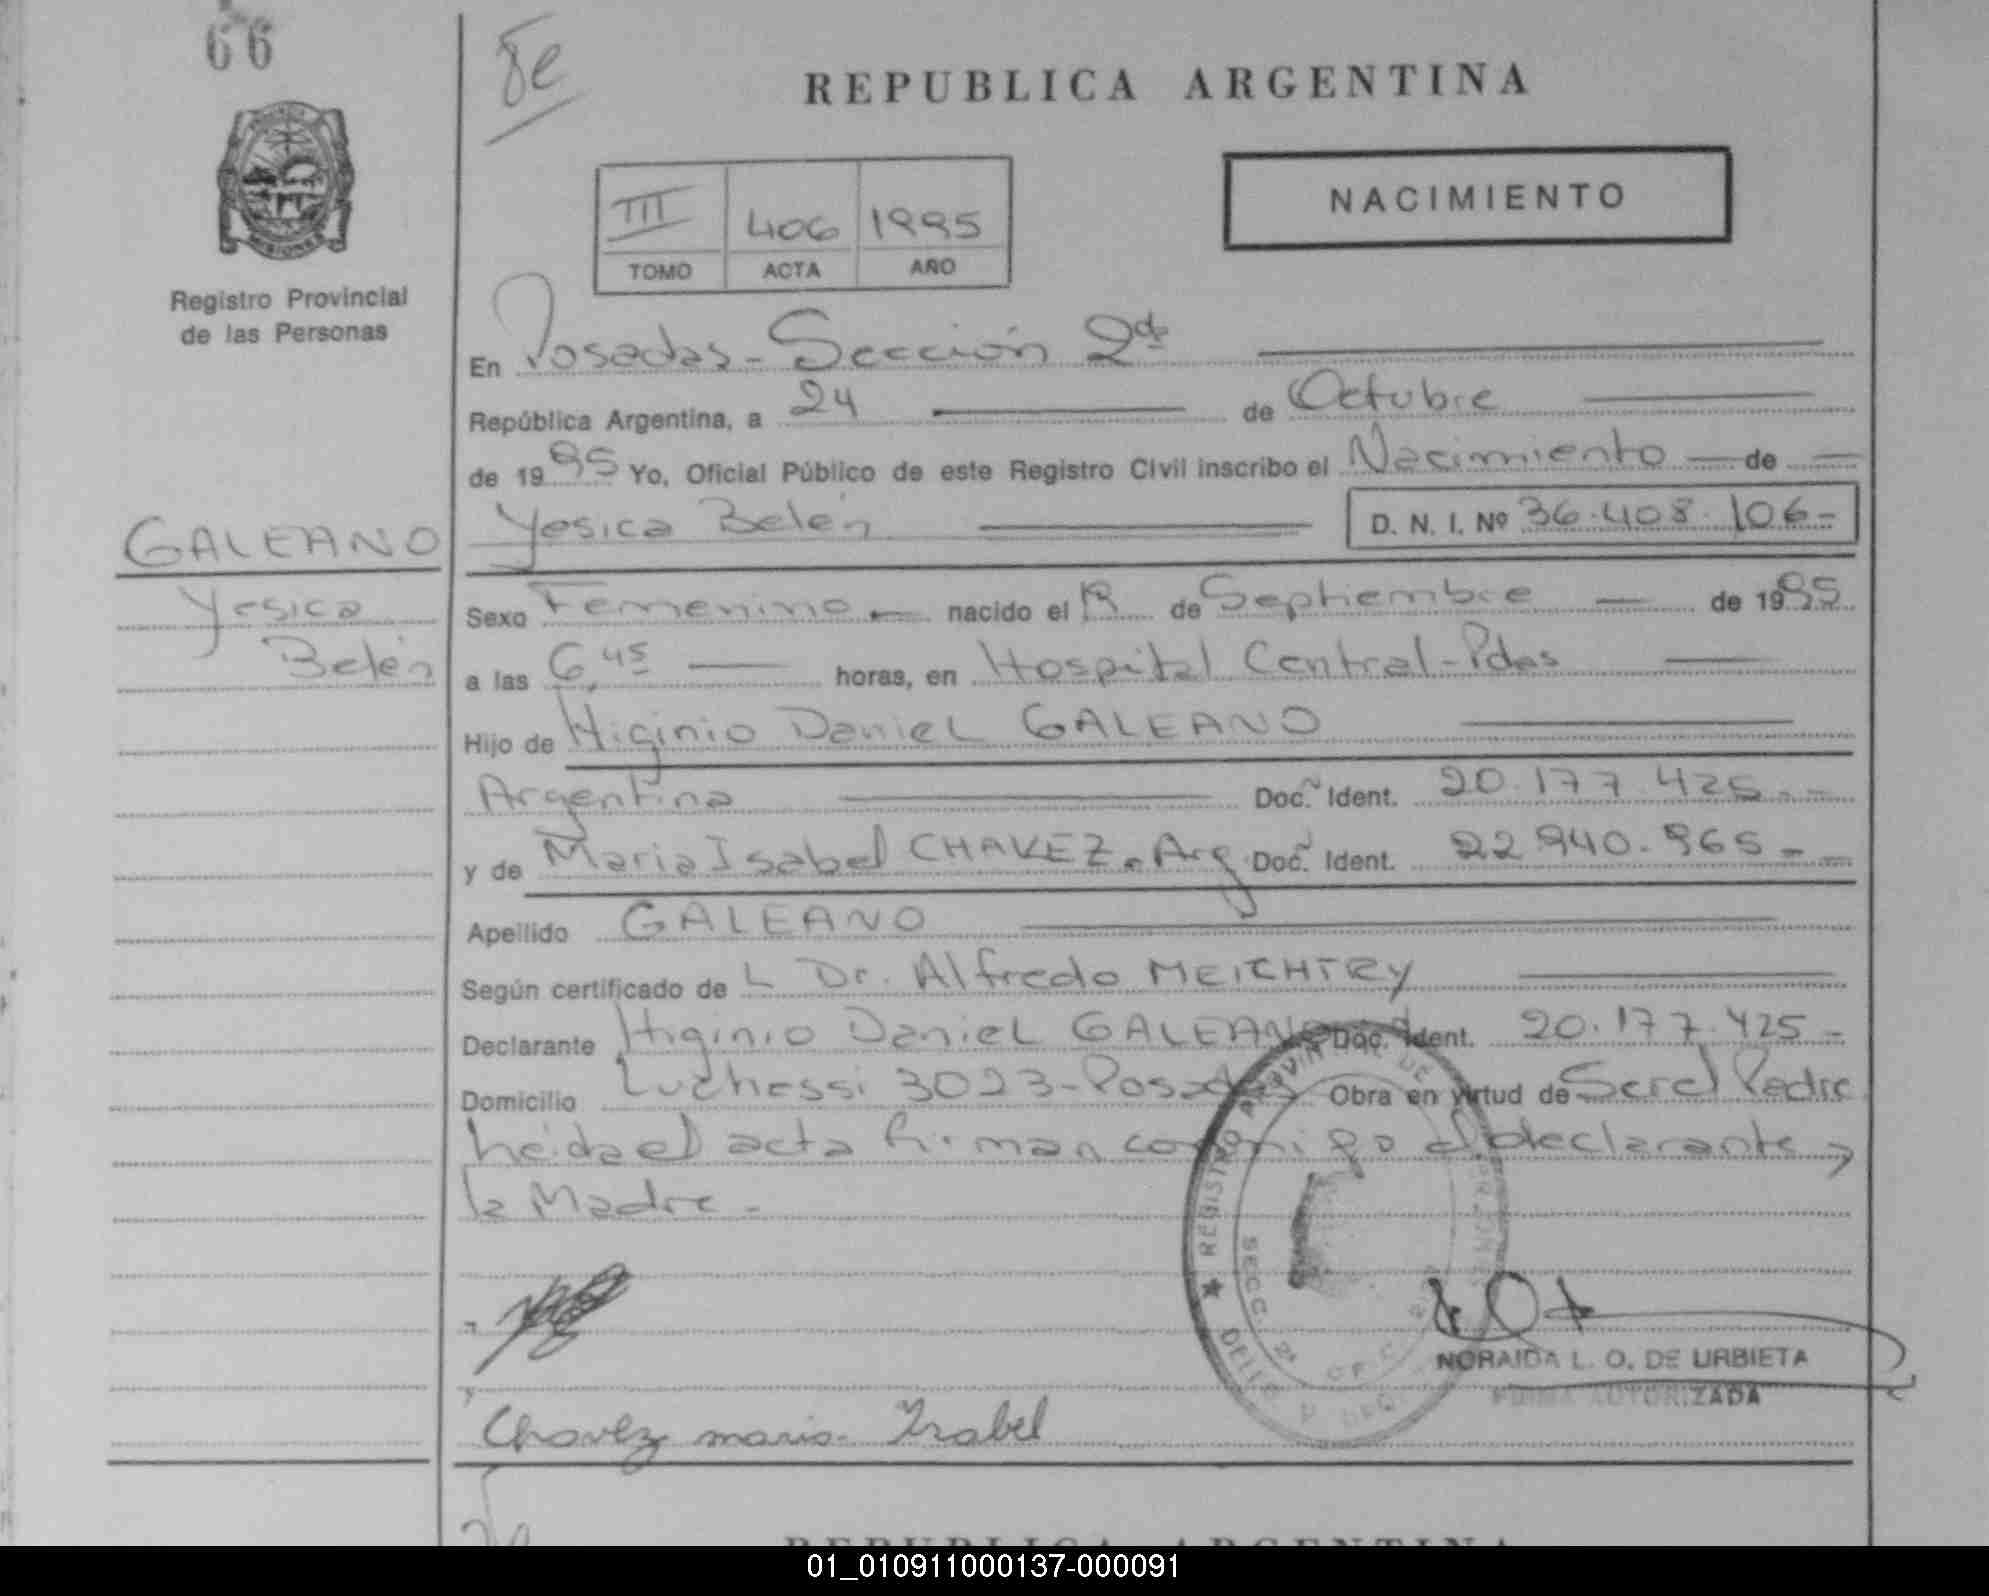 66
Je
REPUBLICA ARGENTINA
NACIMIENTO
III 406 1995
TOMO ACTA AÑO
Registro Provincial
de las Personas
En Posadas - Sección 2da
República Argentina, a 24 de Octubre
de 1995 Yo, Oficial Público de este Registro Civil inscribo el Nacimiento de
GALEANO
Yesica Belén D. N. I. Nº 36.408.106-
Yesica
Belén
Sexo Femenino nacido el de Septiembre de 1995
a las 6,45 horas, en Hospital Central - Pdas
Hijo de Higinio Daniel GALEANO
Argentina Doc. Ident. 20.177.425.-
y de Maria Isabel CHAVEZ. Arg. Doc. Ident. 22.940.965-
Apellido GALEANO
Según certificado de L Dr. Alfredo MEICHTRY
Declarante Higinio Daniel GALEANO Doc. Ident. 20.177.425-
Domicilio Luchessi 3023 - Posadas Obra en virtud de Ser el Padre
Leida el acta firman conmigo el declarante y
la Madre.-
REGISTRO PROVINCIAL DE
SECC. 2ª
NORAIDA L. O. DE URBIETA
FIRMA AUTORIZADA
Chavez maria Isabel
REPUBLICA ARGENTINA
01_010911000137-000091